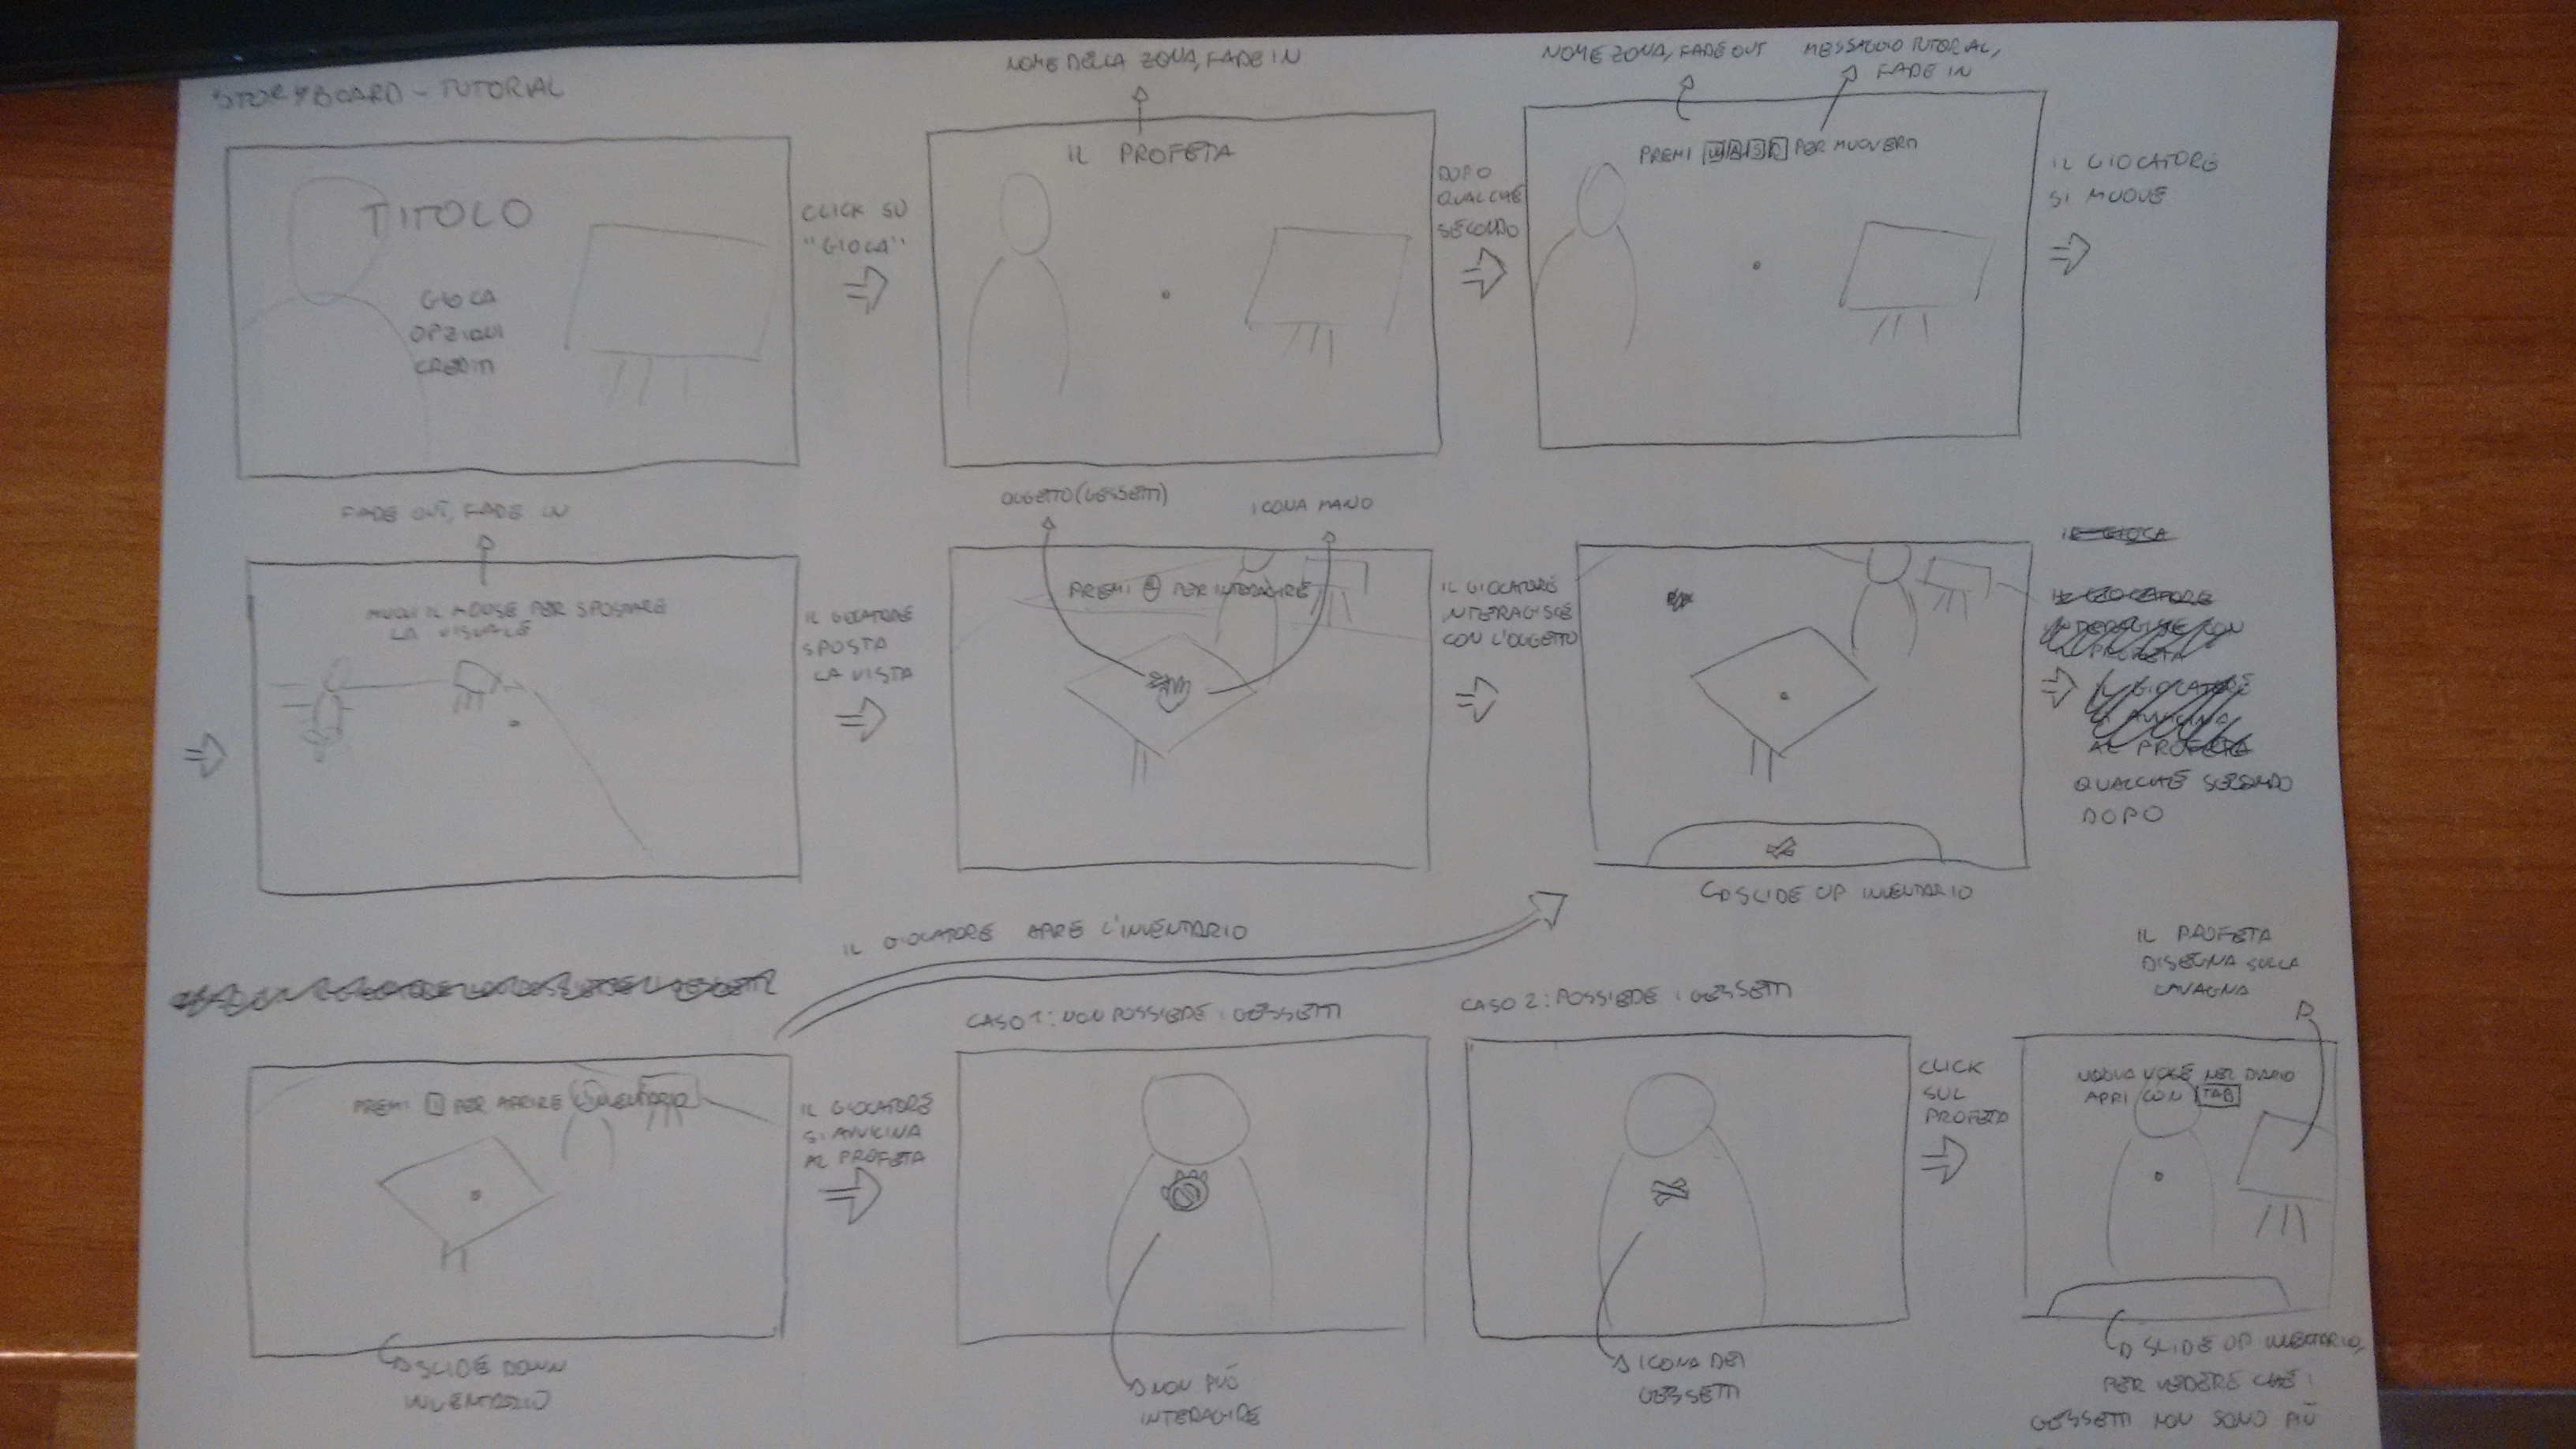 STORYBOARD - TUTORIAL
TITOLO
GIOCA
OPZIONI
CREDITI
CLICK SU
"GIOCA"
NOME DELLA ZONA, FADE IN
IL PROFETA
DOPO
QUALCHE
SECONDO
NOME ZONA, FADE OUT
MESSAGGIO TUTORIAL,
FADE IN
PREMI W A S D PER MUOVERTI
IL GIOCATORE
SI MUOVE
FADE OUT, FADE IN
MUOVI IL MOUSE PER SPOSTARE
LA VISUALE
IL GIOCATORE
SPOSTA
LA VISTA
OGGETTO (GESSETTI)
ICONA MANO
PREMI PER INTERAGIRE
IL GIOCATORE
INTERAGISCE
CON L'OGGETTO
SLIDE UP INVENTARIO
IL GIOCA
IL GIOCATORE
INTERAGISCE CON
IL PROFETA
IL GIOCATORE
SI AVVICINA
AL PROFETA
QUALCHE SECONDO
DOPO
IL GIOCATORE APRE L'INVENTARIO
PREMI I PER APRIRE INVENTARIO
SLIDE DOWN
INVENTARIO
IL GIOCATORE
SI AVVICINA
AL PROFETA
CASO 1: NON POSSIEDE I GESSETTI
NON PUÒ
INTERAGIRE
CASO 2: POSSIEDE I GESSETTI
ICONA DEI
GESSETTI
CLICK
SUL
PROFETA
IL PROFETA
DISEGNA SULLA
LAVAGNA
NUOVA VOCE NEL DIARIO
APRI CON TAB
SLIDE UP INVENTARIO,
PER VEDERE CHE I
GESSETTI NON SONO PIÙ